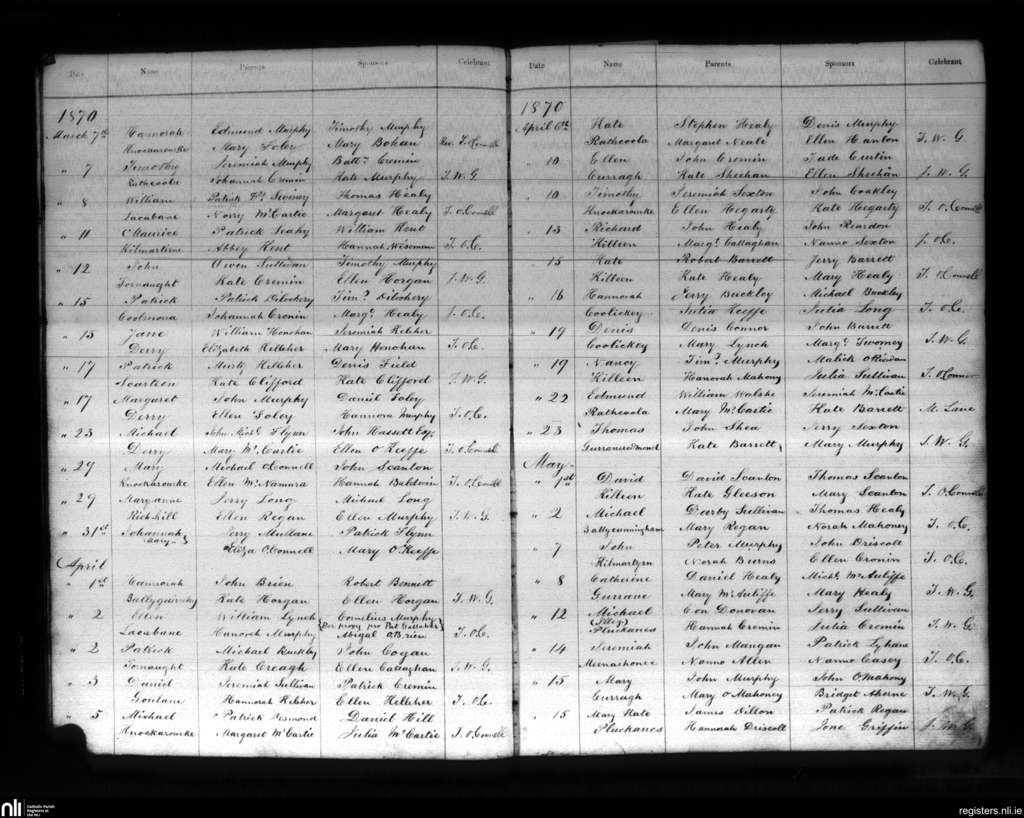 Date Name Parents Sponsors Celebrant
1870
March 7th Hannorah Edmund Murphy Timothy Murphy
Knockarourke Mary Foley Mary Bohan Rev. T. O'Connell
" 7 Timothy Jeremiah Murphy Batt. Cremin
Rathcoola Johannah Cremin Kate Murphy T. W. G.
" 8 William Patrick Sweeny Thomas Healy
Lacabane Norry McCartie Margaret Healy T. O'Connell
" 11 Maurice Patrick Leahy William Kent
Kilmartiene Abbey Kent Hannah Wiseman T. O.C.
" 12 John Owen Sullivan Timothy Murphy
Fornaught Kate Cremin Ellen Horgan T. W. G.
" 15 Patrick Patrick Tim.
Coolmona Johannah Cronin Margt. Healy T. O.C.
" 15 Jane William Honohan Jeremiah Keleher
Derry Elizabeth Kelleher Mary Honohan T. O.C.
" 17 Patrick Murty Kelleher Denis Field
Scarteen Kate Clifford Kate Clifford T. W. G.
" 17 Margaret John Murphy Daniel Foley
Derry Ellen Foley Hannora Murphy T. O.C.
" 23 Michael John Flynn John Hassett Esq.
Derry Mary McCartie Ellen O'Keeffe T. O'Connell
" 29 Mary Michael O'Connell John Scanlon
Knockarourke Ellen McNamara Hannah Baldwin T. O'Connell
" 29 Maryanne Jerry Long Michael Long
Rickhill Ellen Regan Ellen Murphy T. W. G.
" 31st Johannah Jerry Mullane Patrick Flynn
Mary Eliza O'Connell Mary O'Keeffe
April
" 1st Hannorah John Brien Robert Bennett
Kate Horgan Ellen Horgan T. W. G.
" 2 Ellen William Lynch Cornelius Murphy
(Per proxy pro Pat Callaghan
Lacabane Hanorah Murphy Abigal O'Brien T. O.C.
" 2 Patrick Michael Buckley John Cogan
Fornaught Kate Creagh Ellen Callaghan T. W. G.
" 3 Daniel Jeremiah Sullivan Patrick Cremin
Goulane Hannorah Keleher Ellen Kelleher T. O.C.
" 5 Michael Patrick Desmond Daniel Hill
Knockarourke Margaret McCartie Julia McCartie T. O'Connell
Date Name Parents Sponsors Celebrant
1870
April 6th Kate Stephen Healy Denis Murphy
Rathcoola Margaret Neale Ellen Hanlon T. W. G.
" 10 Ellen John Cremin Tade Curtin
Curragh Kate Sheehan Ellen Sheehan T. W. G.
" 10 Timothy Jeremiah Sexton John Coakley
Knockarourke Ellen Hegarty Kate Hegarty T. O'Connell
" 13 Richard John Healy John Reardon
Killeen Margt. Callaghan Nanno Sexton T. O.C.
" 15 Kate Robert Barrett Jerry Barrett
Killeen Kate Healy Mary Healy T. O'Connell
" 16 Hannorah Jerry Buckley Michael Buckley
Coolickey Julia Keeffe Julia Long T. O.C.
" 19 Denis Denis Connor John Barrett
Coolickey Mary Lynch Margt. Twomey T. W. G.
" 19 Nancy Tim. Murphy Malick O'Riordan
Killeen Hanorah Mahony Julia Sullivan T. O'Connor
" 22 Edmund William Walshe Jeremiah McCartie
Rathcoola Mary McCartie Kate Barrett M. Lane
" 23 Thomas John Shea Jerry Sexton
Kate Barrett Mary Murphy T. W. G.
May
" 1st David David Scanlon Thomas Scanlon
Killeen Kate Gleeson Mary Scanlon T. O'Connell
" 2 Michael Darby Sullivan Thomas Healy
Ballycunningham Mary Regan Norah Mahoney T. O.C.
" 7 John Peter Murphy John Driscoll
Kilmartyrn Norah Burns Ellen Cronin T. O.C.
" 8 Catherine Daniel Healy Michl. McAuliffe
Gurrane Mary McAuliffe Mary Healy T. W. G.
" 12 Michael Con Donovan Jerry Sullivan
(Illeg.)
Pluckanes Hannah Cremin Julia Cremin T. W. G.
" 14 Jeremiah John Mangan Patrick Lyhane
Meenahonee Nanno Allen Nanno Casey T. O.C.
" 15 Mary John Murphy John O'Mahony
Curragh Mary O'Mahoney Bridget Aherne T. W. G.
" 15 Mary Kate James Dillon Patrick Regan
Pluckanes Hannorah Driscoll Jone Griffin T. W. G.
nli
Catholic Parish
Registers at
the NLI
registers.nli.ie